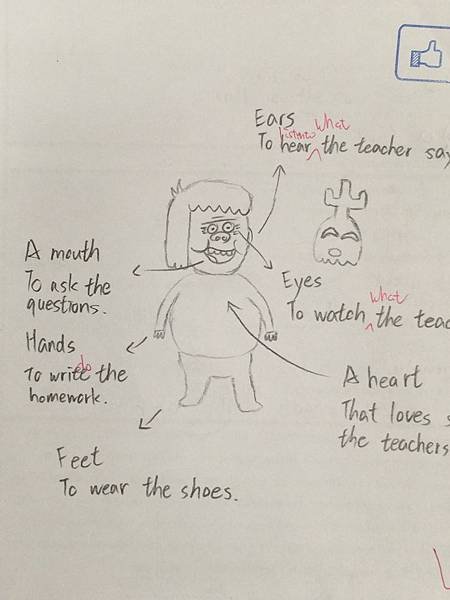 Ears
listen to what
To hear the teacher say
A mouth
To ask the
questions.
Eyes
what
To watch the teac
Hands
do
To write the
homework.
A heart
That loves s
the teachers
Feet
To wear the shoes.